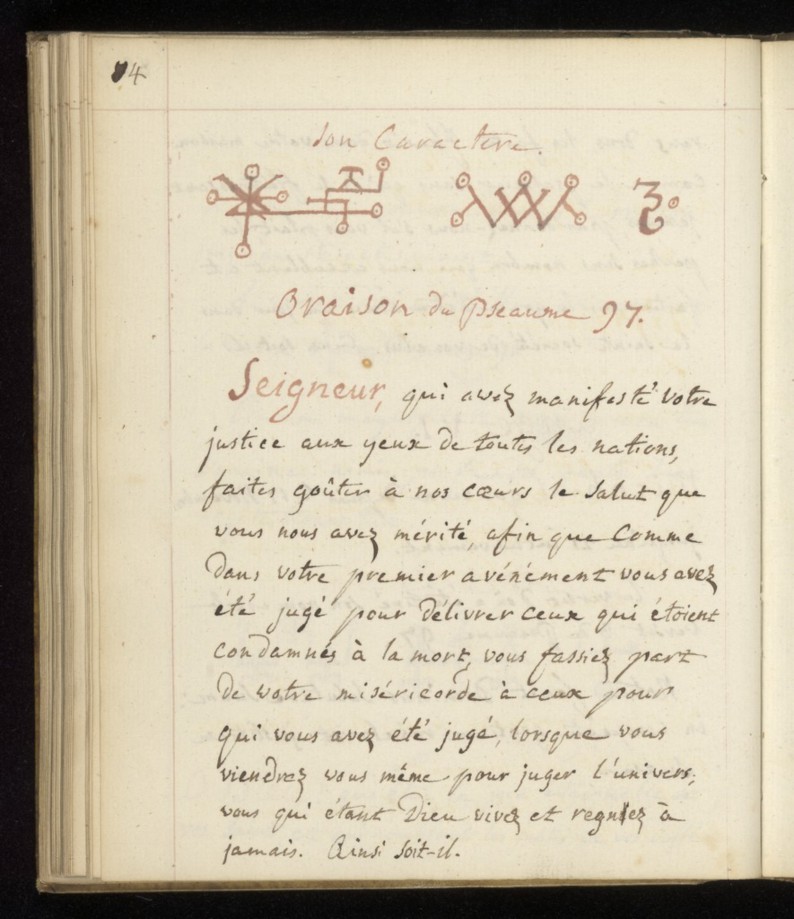 84
Son Caractere.
Oraison du Pseaume 97.
Seigneur, qui avez manifesté votre
justice aux yeux de toutes les nations,
faites goûter à nos cœurs le Salut que
vous nous avez mérité, afin que Comme
Dans votre premier avénément vous avez
été jugé pour Délivrer ceux qui étoient
condamnés à la mort, vous fassiez part
De votre miséricorde à ceux pour
qui vous avez été jugé, lorsque vous
viendrez vous même pour juger l'univers;
vous qui étant Dieu vivez et regnez à
jamais. Ainsi Soit-il.